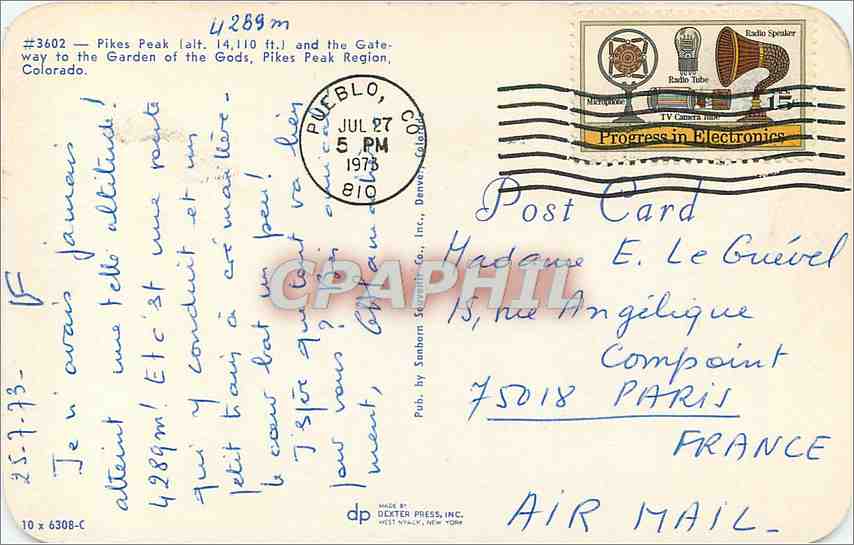 4289m
#3602 — Pikes Peak (alt. 14,110 ft.) and the Gate-
way to the Garden of the Gods, Pikes Peak Region,
Colorado.
PUEBLO, CO
JUL 27
5 PM
1973
810
Radio Speaker
Radio Tube
Microphone
TV Camera Tube
15
Progress in Electronics
25-7-73-
Je n'avais jamais
atteint une telle altitude!
4289m! Et c'est une route
qui y conduit et un
petit train à crémaillère-
le cœur bat un peu!
J'espère que tout va bien
pour vous? Bien amicale-
ment,
Post Card
Madame E. Le Guével
15, rue Angélique
Compoint
75018 PARIS
FRANCE
AIR MAIL-
Pub. by Sanborn Souvenir Co., Inc., Denver, Colorado
CPAPHIL
10 x 6308-C
dp
MADE BY
DEXTER PRESS, INC.
WEST NYACK, NEW YORK